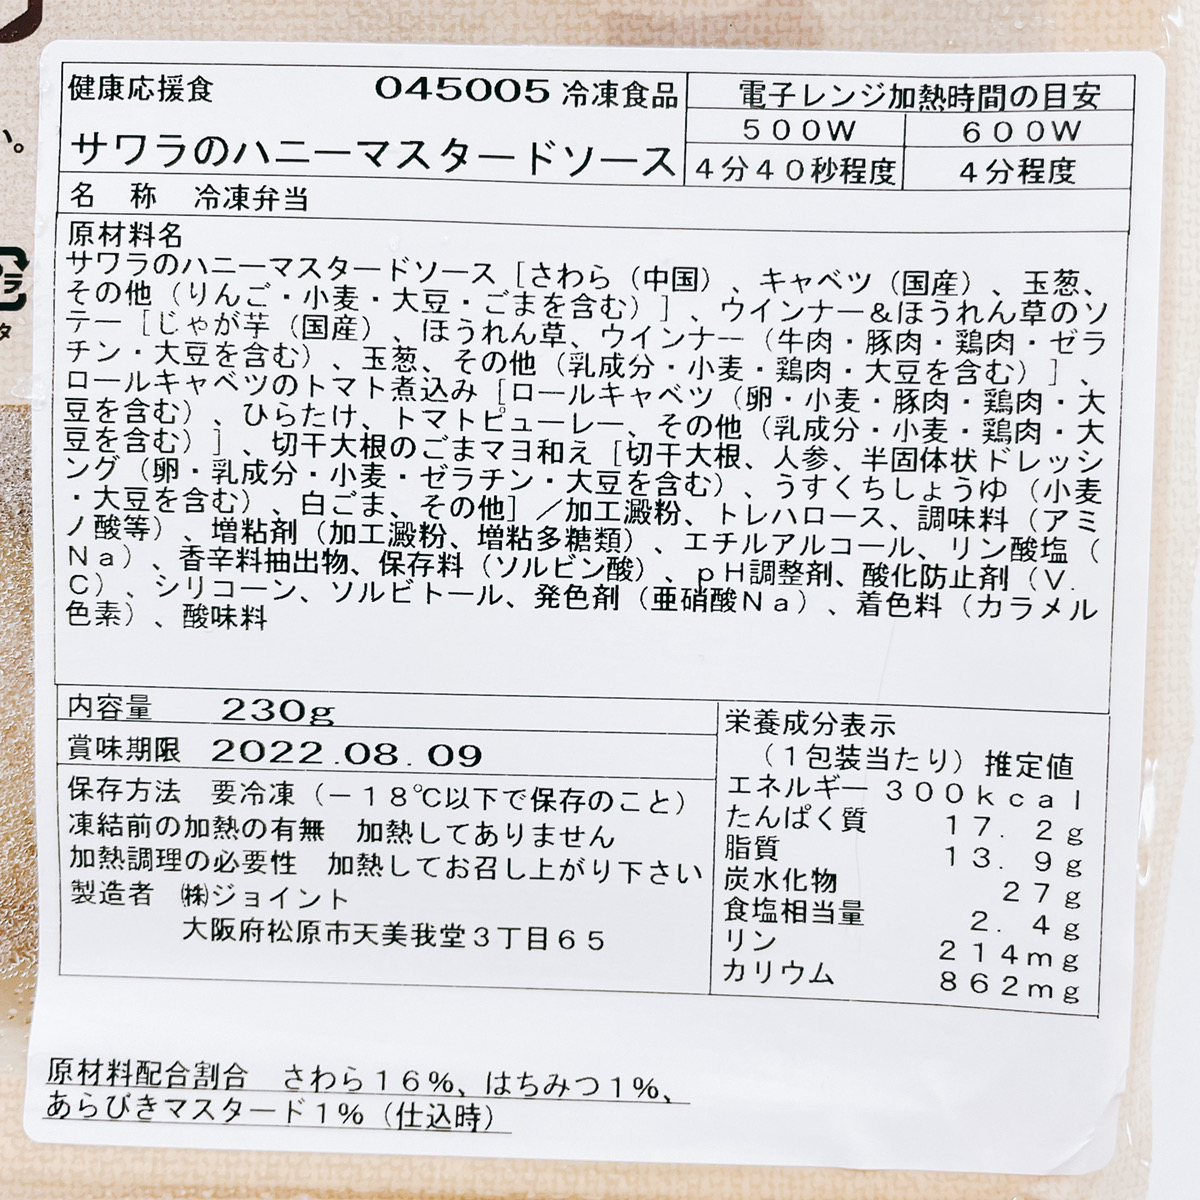 健康応援食 045005 冷凍食品
サワラのハニーマスタードソース
電子レンジ加熱時間の目安
500W 600W
4分40秒程度 4分程度
名 称 冷凍弁当
原材料名
サワラのハニーマスタードソース[さわら(中国)、キャベツ(国産)、玉葱、
その他(りんご・小麦・大豆・ごまを含む)]、ウインナー&ほうれん草のソ
テー[じゃが芋(国産)、ほうれん草、ウインナー(牛肉・豚肉・鶏肉・ゼラ
チン・大豆を含む)、玉葱、その他(乳成分・小麦・鶏肉・大豆を含む)]、
ロールキャベツのトマト煮込み[ロールキャベツ(卵・小麦・豚肉・鶏肉・大
豆を含む)、ひらたけ、トマトピューレー、その他(乳成分・小麦・鶏肉・大
豆を含む)]、切干大根のごまマヨ和え[切干大根、人参、半固体状ドレッシ
ング(卵・乳成分・小麦・ゼラチン・大豆を含む)、うすくちしょうゆ(小麦
・大豆を含む)、白ごま、その他]/加工澱粉、トレハロース、調味料(アミ
ノ酸等)、増粘剤(加工澱粉、増粘多糖類)、エチルアルコール、リン酸塩(
Na)、香辛料抽出物、保存料(ソルビン酸)、pH調整剤、酸化防止剤(V.
C)、シリコーン、ソルビトール、発色剤(亜硝酸Na)、着色料(カラメル
色素)、酸味料
内容量 230g
賞味期限 2022.08.09
保存方法 要冷凍(-18℃以下で保存のこと)
凍結前の加熱の有無 加熱してありません
加熱調理の必要性 加熱してお召し上がり下さい
製造者 ㈱ジョイント
大阪府松原市天美我堂3丁目65
栄養成分表示
(1包装当たり)推定値
エネルギー 300kcal
たんぱく質 17.2g
脂質 13.9g
炭水化物 27g
食塩相当量 2.4g
リン 214mg
カリウム 862mg
原材料配合割合 さわら16%、はちみつ1%、
あらびきマスタード1%(仕込時)
い。